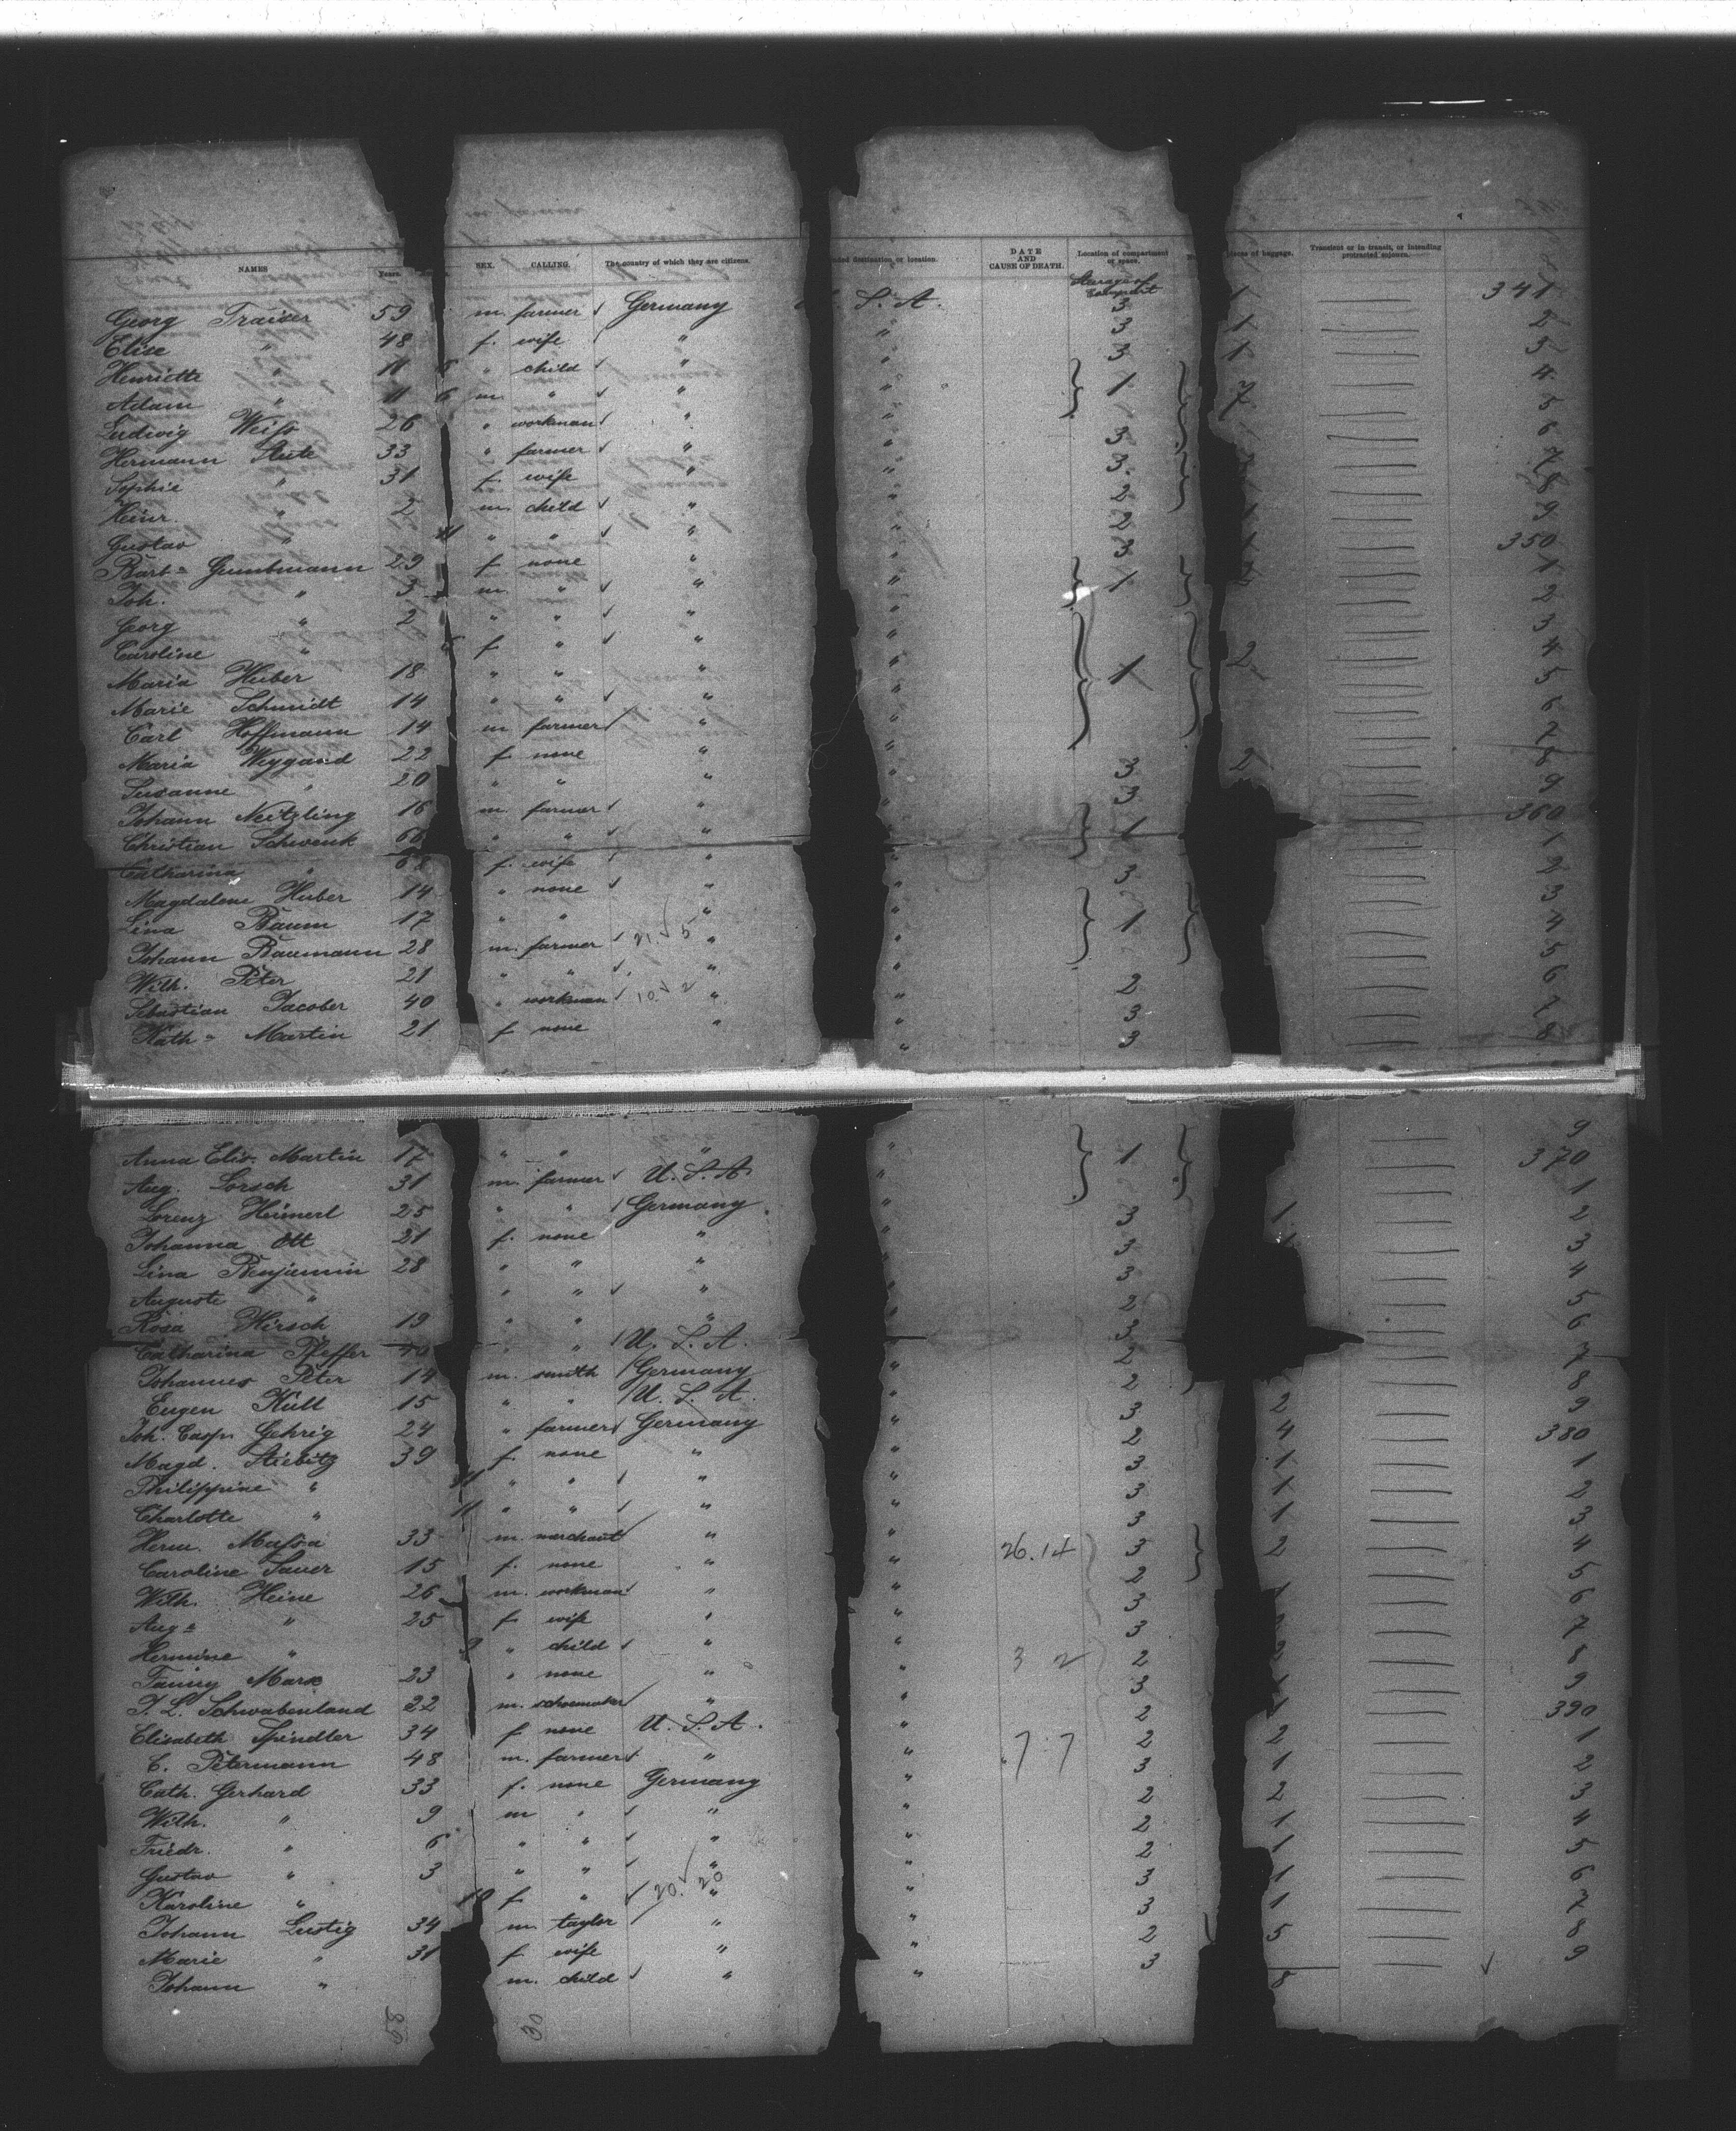 NAMES Years. SEX. CALLING. The country of which they are citizens. destination, or location. DATE AND CAUSE OF DEATH. Location of compartment or space. of baggage. Transient or in transit, or intending protracted sojourn.
Steerage
Georg Traiser 59 m. farmer Germany S. A. 3 1 341
Elise " 48 f. wife " " 3 1 2
Henriette " 11 " child " " 3 1 3
Adam " 11 m. " " " 1 7 4
Ludwig Weiß 26 " workman " " 5
Hermann Stute 33 " farmer " " 3 6
Sophie " 31 f. wife " " 3. 7
Heinr. " 2 m. child " " 2 8
Gustav " 11 " " " " 2 9
Barb= Gumbmann 29 f. none " " 3 350
Joh. " 3 m. " " " 1 1
Georg " 2 " " " " 2
Caroline " f " " " 3
Maria Huber 18 " " " " 1 2 4
Marie Schmidt 14 " " " " 5
Carl Hoffmann 14 m farmer " " 6
Maria Weygand 22 f. none " " 7
Susanne " 20 " " " " 3 2 8
Johann Neitzling 16 m. farmer " " 3 9
Christian Schwenk 66 " " " " 1 360
Catharina " 68 f. wife " " 1
Magdalene Huber 14 " none " " 3 2
Lina Baum 17 " " " " 3
Johann Baumann 28 m. farmer " " 1 4
Wilh. Peter 21 " " " " 5
Sebastian Jacober 40 " workman " " 2 6
Kath= Martin 21 f. none " " 3 7
3 8
Anna Elis. Martin 17 " " " " 1 9
Aug. Lorsch 31 m. farmer U. S. A. " 370
Lorenz Heimerl 25 " " Germany " 3 1. 1
Johanna Ott 21 f. none " " 3 2
Lina Benjamin 28 " " " " 3 3
Auguste " " " " " 2 4
Rosa Hirsch 19 " " " " 3 5
Catharina Pfeffer 40 " " U. S. A. 2 6
Johannes Peter 14 m. smith Germany " 2 7
Eugen Kull 15 " " U. S. A. " 3 2 8
Joh. Casp. Gehrig 24 " farmer Germany " 2 4 9
Magd. Stiebitz 39 f. none " " 3 1. 380
Philippine " 11 " " " " 3 1 1
Charlotte " 11 " " " " 3 1 2
Herm. Massa 33 m. merchant " " 26.14 3 2 3
Caroline Sauer 15 f. none " " 2 4
Wilh. Heine 26 m. workman " " 3 1 5
Aug= " 25 f. wife " " 3 6
Hermine " " child " " 3 2 2 7
Fanny Marx 23 " none " " 3 8
J. L. Schwabenland 22 m. schoemaker " " 2 1 9
Elisabeth Spindler 34 f. none U. S. A. " 7.7 2 2 390
C. Petermann 48 m. farmer " " 3 1 1
Cath. Gerhard 33 f. none Germany " 2 2 2
Wilh. " 9 m " " " 2 1 3
Friedr. " 6 " " " " 2 1 4
Gustav " 3 " " " " 3 1 5
Karoline " 10 f " 20. 20 " " 3 1 6
Johann Lustig 34 m. taylor " " 2 5 7
Marie " 31 f. wife " " 3 8
Johann " m. child " " 8 9
30